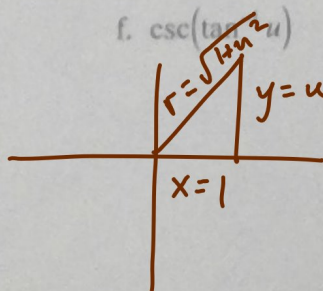 f. csc(tan⁻¹u)
r = √1+u²
y = u
x = 1